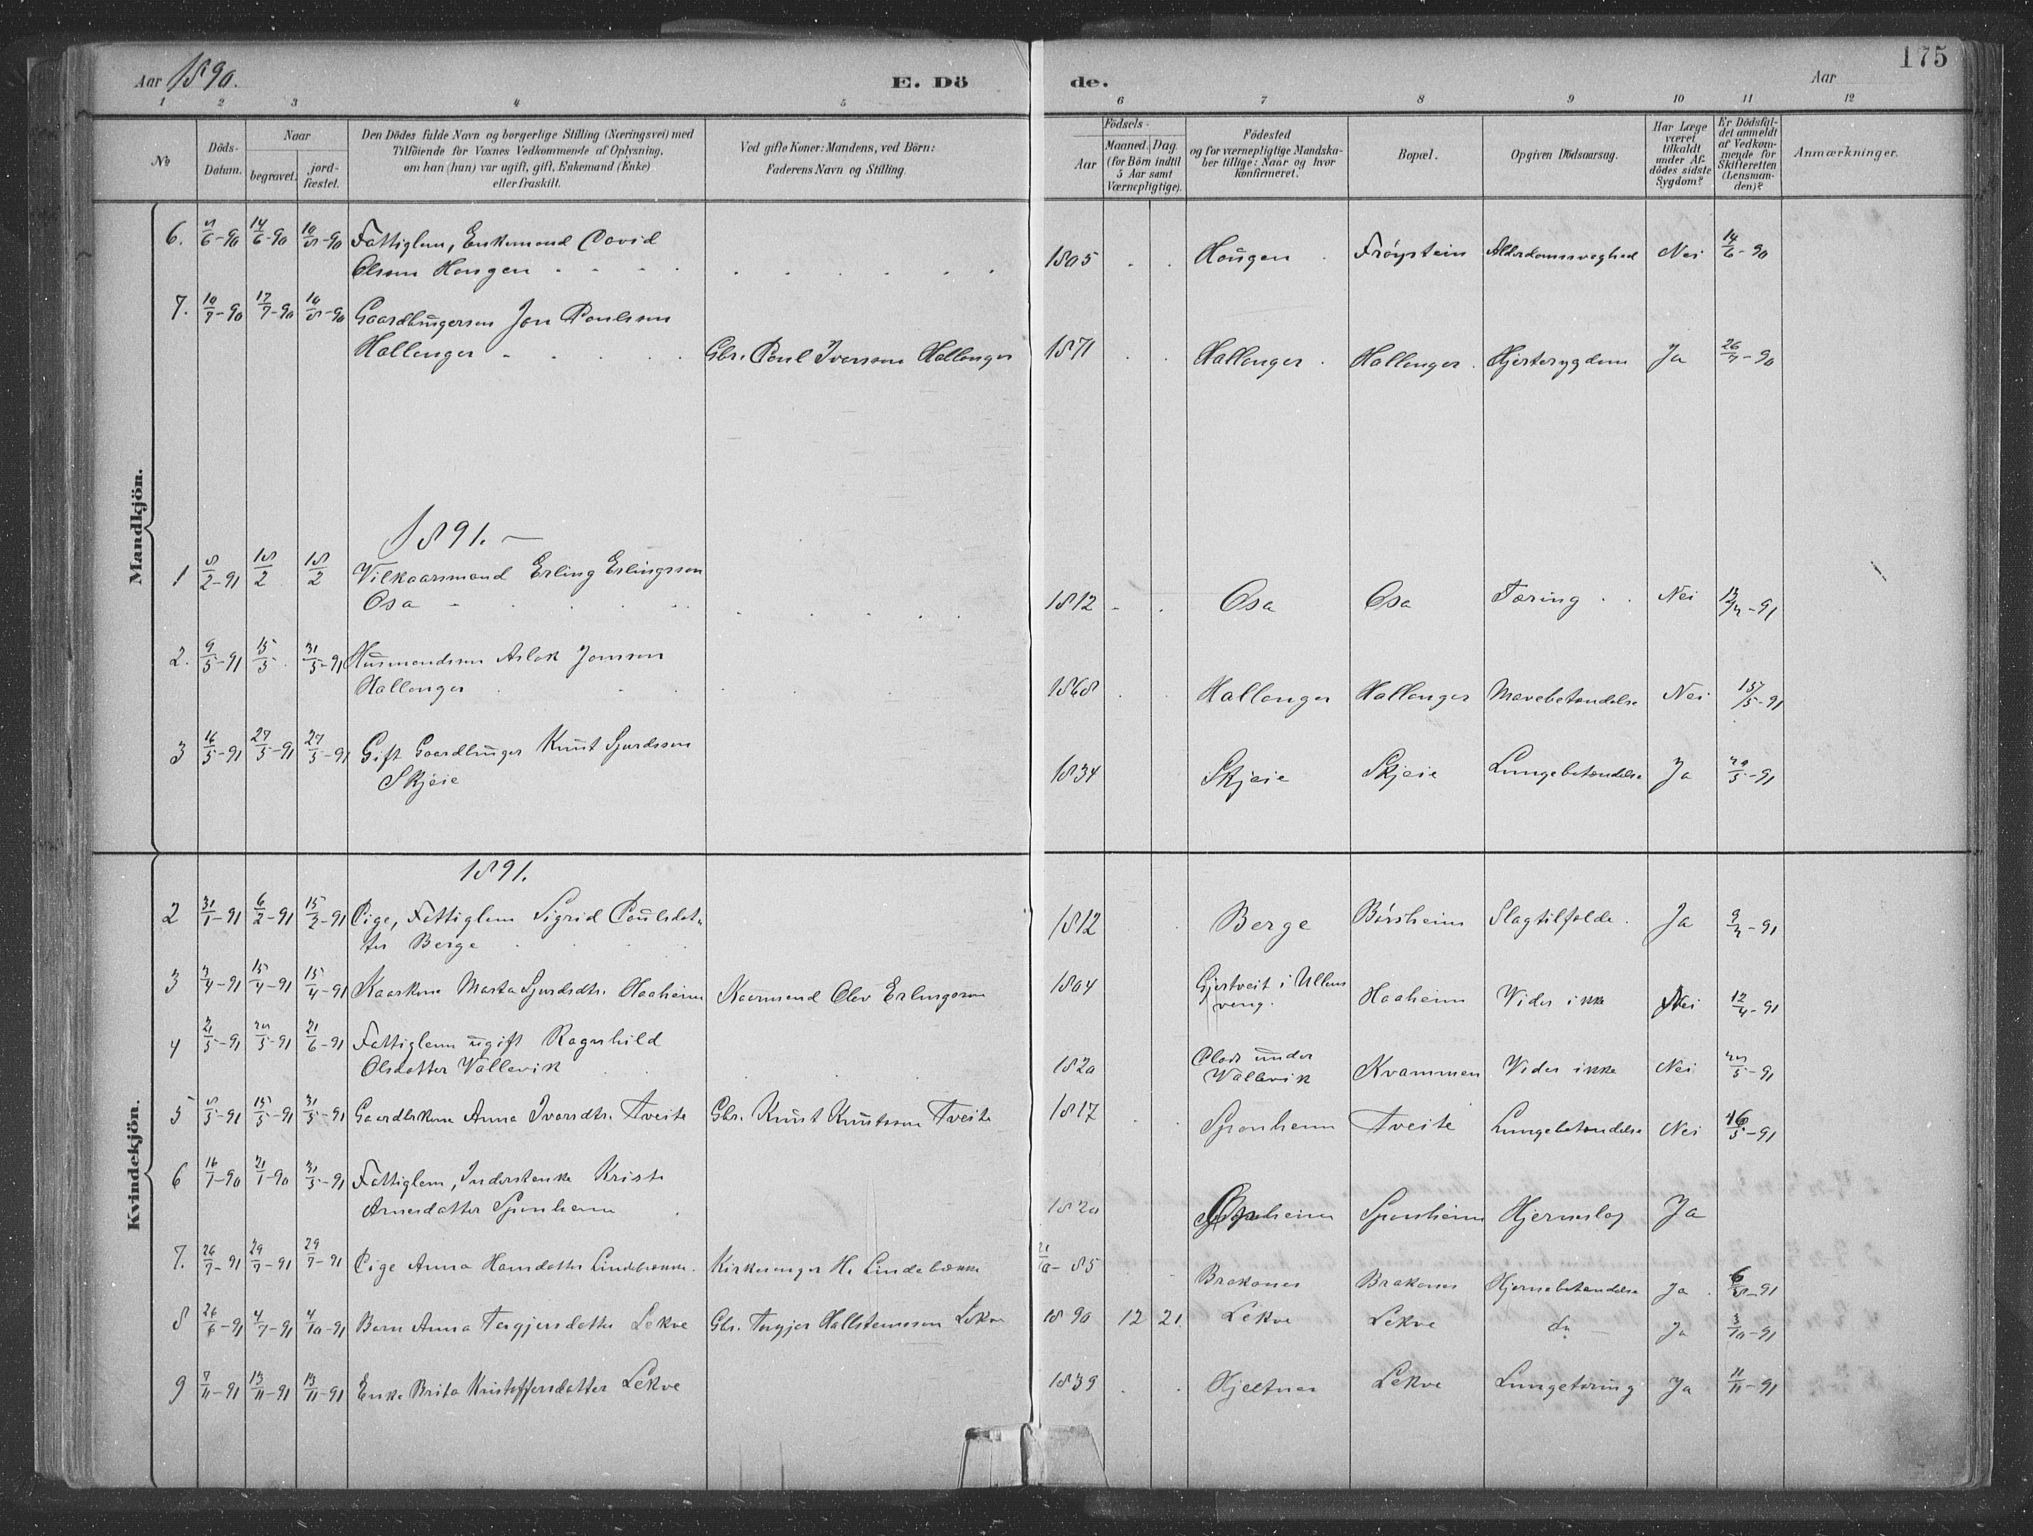 175
Aar 1890. E. Dö de. Aar
1 2 3 4 5 6 7 8 9 10 11 12
No
Döds-Datum.
Naar
begravet.
jord-fæstet.
Den Dödes fulde Navn og borgerlige Stilling (Næringsvei) med
Tilföiende for Voxnes Vedkommende af Oplysning,
om han (hun) var ugift, gift, Enkemand (Enke)
eller fraskilt.
Ved gifte Koner: Mandens, ved Börn:
Faderens Navn og Stilling.
Födsels-
Aar
Maaned. Dag.
(for Börn indtil
5 Aar samt
Værnepligtige).
Födested
og for værnepligtige Mandska-
ber tillige: Naar og hvor
konfirmeret.
Bopæl.
Opgiven Dödsaarsag.
Har Læge
været
tilkaldt
under Af-
dödes sidste
Sygdom?
Er Dödsfal-
det anmeldt
af Vedkom-
mende for
Skifteretten
(Lensman-
den)?
Anmærkninger.
Mandkjön.
6. 8/6-90 14/6-90 10/8-90 Fattiglem, Enkemand David
Olsen Haugen 1805 Haugen Frøystein Alderdomssvaghed Nei 14/6-90
7. 10/7-90 17/7-90 10/8-90 Gaardbrugersøn Jon Poulssen
Hallanger Gbr. Poul Iversson Hallanger 1871 Hallanger Hallanger Hjertesygdom Ja 26/7-90
1891.
1 8/2-91 18/2 18/2 Vilkaarsmand Erling Erlingsson
Osa 1812 Osa Osa Tæring Nei 13/2-91
2. 9/5-91 15/5 31/5-91 Husmandssøn Aslak Jonsson
Hallanger 1868 Hallanger Hallanger Mavebetændelse Nei 15/5-91
3 16/5-91 27/5-91 27/5-91 Gift Gaardbruger Knut Sjurdsson
Skjeie 1834 Skjeie Skjeie Lungebetændelse Ja 20/5-91
Kvindekjön.
1891.
2 31/1-91 6/2-91 15/2-91 Pige, Fattiglem Sigrid Poulsdat-
ter Berge 1812 Berge Børsheim Slagtilfælde. Ja 9/2-91
3 3/4-91 15/4-91 15/4-91 Kaarkone Marta Sjurdsdtr. Haaheim Kaarmand Olav Erlingsson 1804 Gjertveit i Ullens
vang. Haaheim Vides ikke Nei 12/4-91
4 21/5-91 28/5-91 21/6-91 Fattiglem ugift Ragnhild
Olsdatter Vallevik 1820 Plads under
Vallevik Kvammen Vides ikke Nei 28/5-91
5 8/5-91 15/5-91 31/5-91 Gaardbrkone Anna Ivarsdtr. Tveite Gbr. Knut Knutsson Tveite 1817 Sponheim Tveite Lungebetændelse Nei 16/5-91
6 16/7-90 21/7-90 31/5-91 Fattiglem, Inderstenke Kristi
Arnesdatter Sponheim 1820 Sponheim Hjerneslag Ja
7. 26/7-91 29/7-91 29/7-91 Pige Anna Hansdatter Lindebrække. Kirkesanger H. Lindebrække 21/10-85 Brakanes Brakanes Hjernebetændelse Ja 6/8-91
8 26/6-91 4/7-91 4/10-91 Barn Anna Torgjersdatter Lekve Gbr. Torgjer Hallsteinsson Lekve 1890 12 21 Lekve Lekve do Ja 3/10-91
9 7/11-91 13/11-91 13/11-91 Enke Brita Kristoffersdatter Lekve 1839 Hjeltnes Lekve Lungetæring Ja 11/11-91